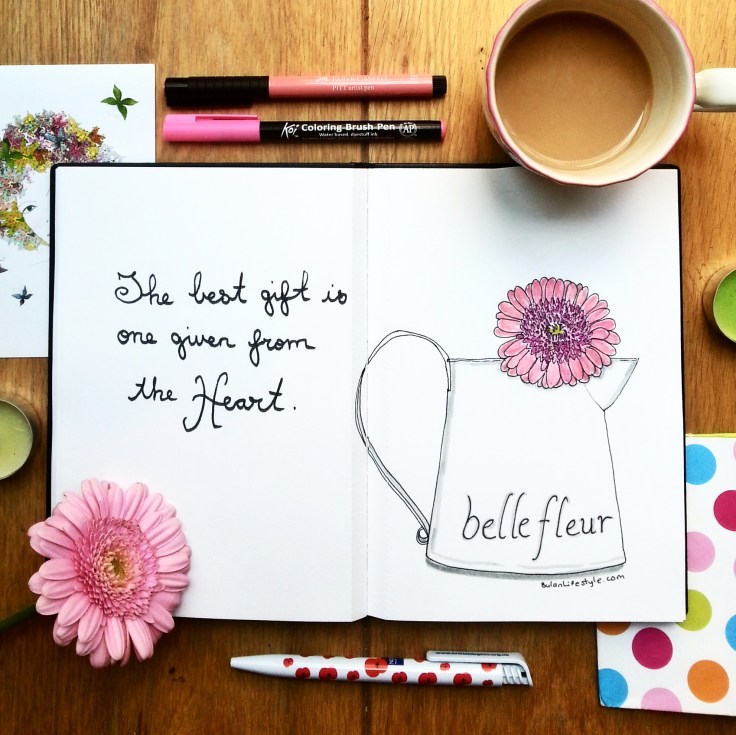 PITT artist pen
Koi Coloring Brush Pen
Water based, dyestuff ink
AP
The best gift is
one given from
the Heart.
belle fleur
BulanLifestyle.com